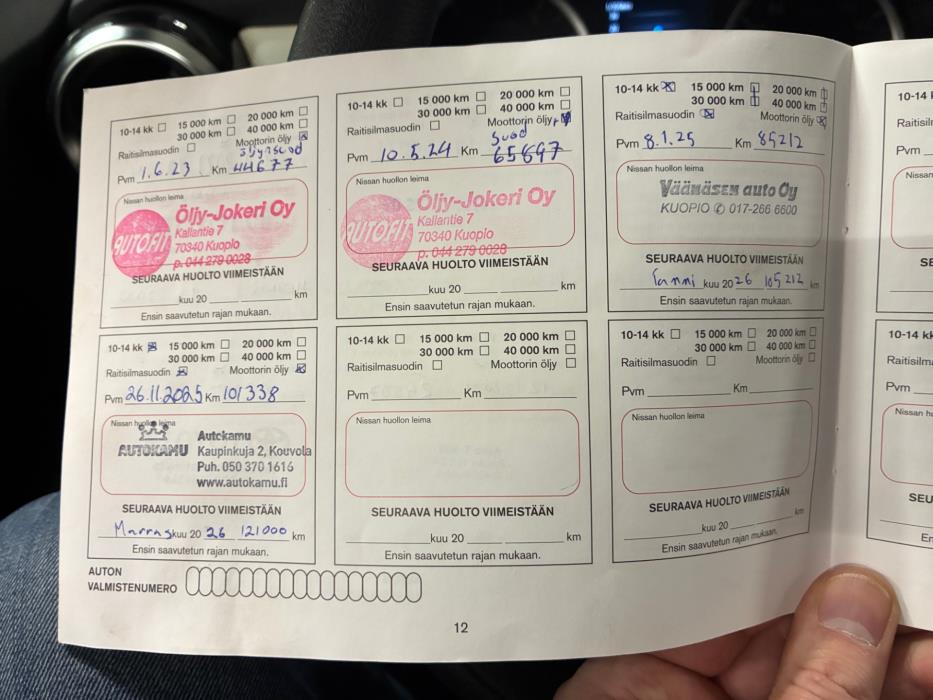 10-14 kk 15 000 km 20 000 km
30 000 km 40 000 km
Raitisilmasuodin Moottorin öljy
Pvm 1.6.23 Km 44677
Nissan huollon leima
AUTOFIT
Öljy-Jokeri Oy
Kallantie 7
70340 Kuopio
p. 044 279 0028
SEURAAVA HUOLTO VIIMEISTÄÄN
kuu 20 km
Ensin saavutetun rajan mukaan.
10-14 kk 15 000 km 20 000 km
30 000 km 40 000 km
Raitisilmasuodin Moottorin öljy
Pvm 10.5.24 Km 65697
Nissan huollon leima
AUTOFIT
Öljy-Jokeri Oy
Kallantie 7
70340 Kuopio
p. 044 279 0028
SEURAAVA HUOLTO VIIMEISTÄÄN
kuu 20 km
Ensin saavutetun rajan mukaan.
10-14 kk 15 000 km 20 000 km
30 000 km 40 000 km
Raitisilmasuodin Moottorin öljy
Pvm 8.1.25 Km 85212
Nissan huollon leima
Väänäsen auto Oy
KUOPIO ✆ 017-266 6600
SEURAAVA HUOLTO VIIMEISTÄÄN
Tammi kuu 2026 105212 km
Ensin saavutetun rajan mukaan.
10-14 kk 15 000 km 20 000 km
30 000 km 40 000 km
Raitisilmasuodin Moottorin öljy
Pvm 26.11.2025 Km 101338
Nissan huollon leima
AUTOKAMU
Autokamu
Kaupinkuja 2, Kouvola
Puh. 050 370 1616
www.autokamu.fi
SEURAAVA HUOLTO VIIMEISTÄÄN
Marraskuu 20 26 121000 km
Ensin saavutetun rajan mukaan.
10-14 kk 15 000 km 20 000 km
30 000 km 40 000 km
Raitisilmasuodin Moottorin öljy
Pvm Km
Nissan huollon leima
SEURAAVA HUOLTO VIIMEISTÄÄN
kuu 20 km
Ensin saavutetun rajan mukaan.
10-14 kk 15 000 km 20 000 km
30 000 km 40 000 km
Raitisilmasuodin Moottorin öljy
Pvm Km
Nissan huollon leima
SEURAAVA HUOLTO VIIMEISTÄÄN
kuu 20 km
Ensin saavutetun rajan mukaan.
AUTON
VALMISTENUMERO
12
10-14 k
Pvm
Nissan
10-14 kk
Pvm